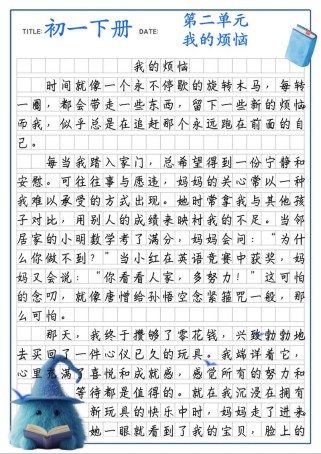 TITLE: 初一下册 DATE: 第二单元
我的烦恼
我的烦恼
时间就像一个永不停歇的旋转木马，每转
一圈，都会带走一些东西，留下一些新的烦恼
而我，似乎总是在追赶那个永远跑在前面的自
己。
每当我踏入家门，总希望得到一份宁静和
安慰。可往往事与愿违，妈妈的关心常以一种
我难以承受的方式出现。她时常拿我与其他孩
子对比，用别人的成绩来映衬我的不足。当邻
居家的小明数学考了满分，妈妈会问：“为什
么你做不到？”当小红在英语竞赛中获奖，妈
妈又会说：“你看看人家，多努力！”这可怕
的念叨，就像唐僧给孙悟空念紧箍咒一般，那
么可怕。
那天，我终于攒够了零花钱，兴致勃勃地
去买回了一件心仪已久的玩具。我端详着它，
心里充满了喜悦和成就感，感觉所有的努力和
等待都是值得的。就在我沉浸在拥有
新玩具的快乐中时，妈妈走了进来
她一眼就看到了我的宝贝，脸上的